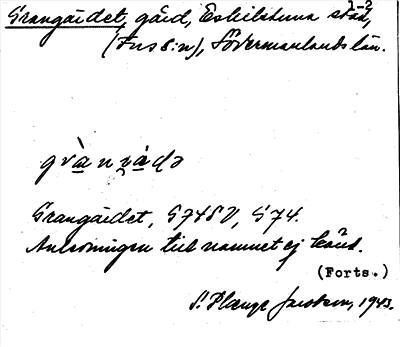 Grangärdet, gård, Eskilstuna stad,
(Fors s:n), Södermanlands län.
Grangärdet, G74SV, G74.
Anledningen till namnet ej känd.
(Forts.)
S. Plænge Jacobson, 1943.